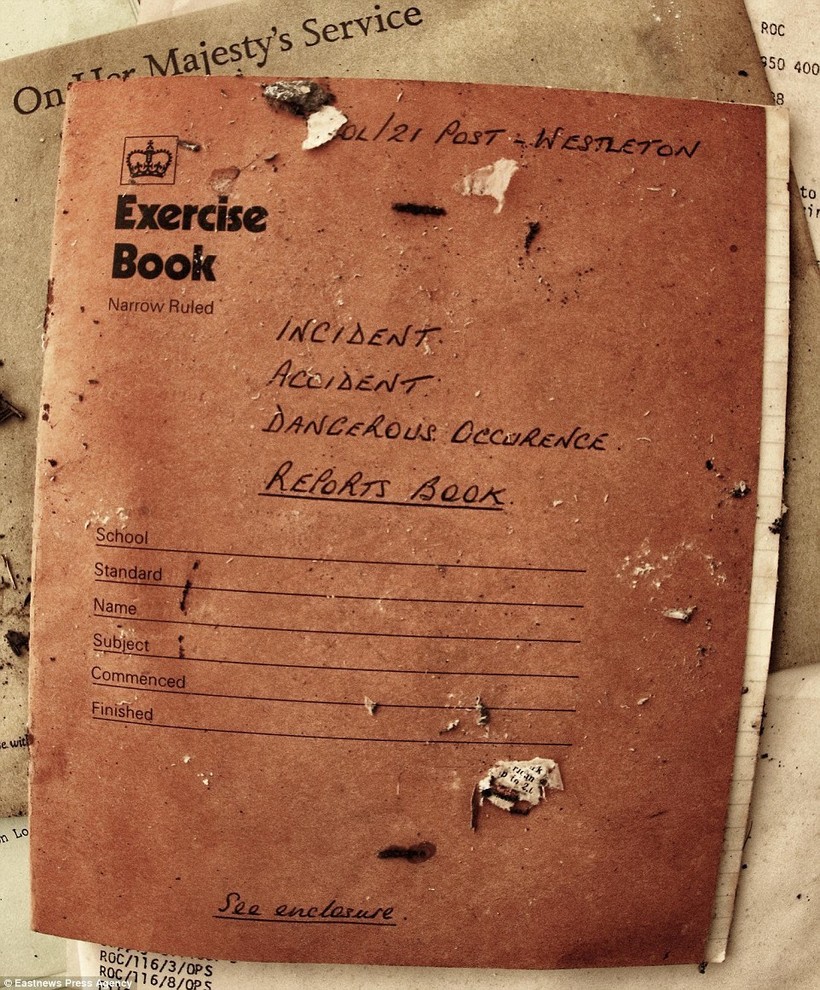 On Her Majesty's Service
ROC
950 400
88
to
OL/21 POST - WESTLETON
Exercise
Book
Narrow Ruled
INCIDENT.
ACCIDENT.
DANGEROUS OCCURENCE.
REPORTS BOOK.
School
Standard
Name
Subject
Commenced
Finished
See enclosure.
ROC/116/3/OPS
ROC/116/8/OPS
© Eastnews Press Agency